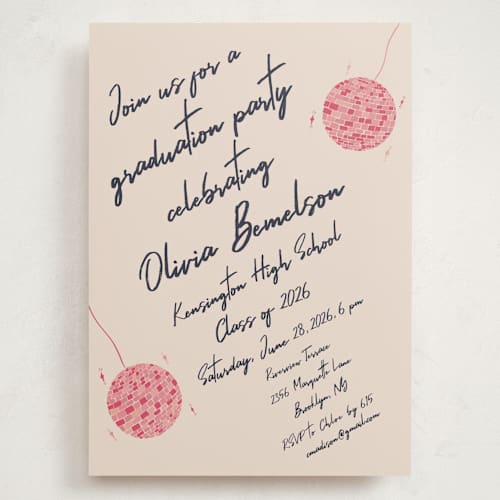 Join us for a
graduation party
celebrating
Olivia Bemelson
Kensington High School
Class of 2026
Saturday, June 28, 2026, 6 pm
Riverview Terrace
2356 Marquette Lane
Brooklyn, NY
RSVP to Chloe by 6.15
cmadison@gmail.com